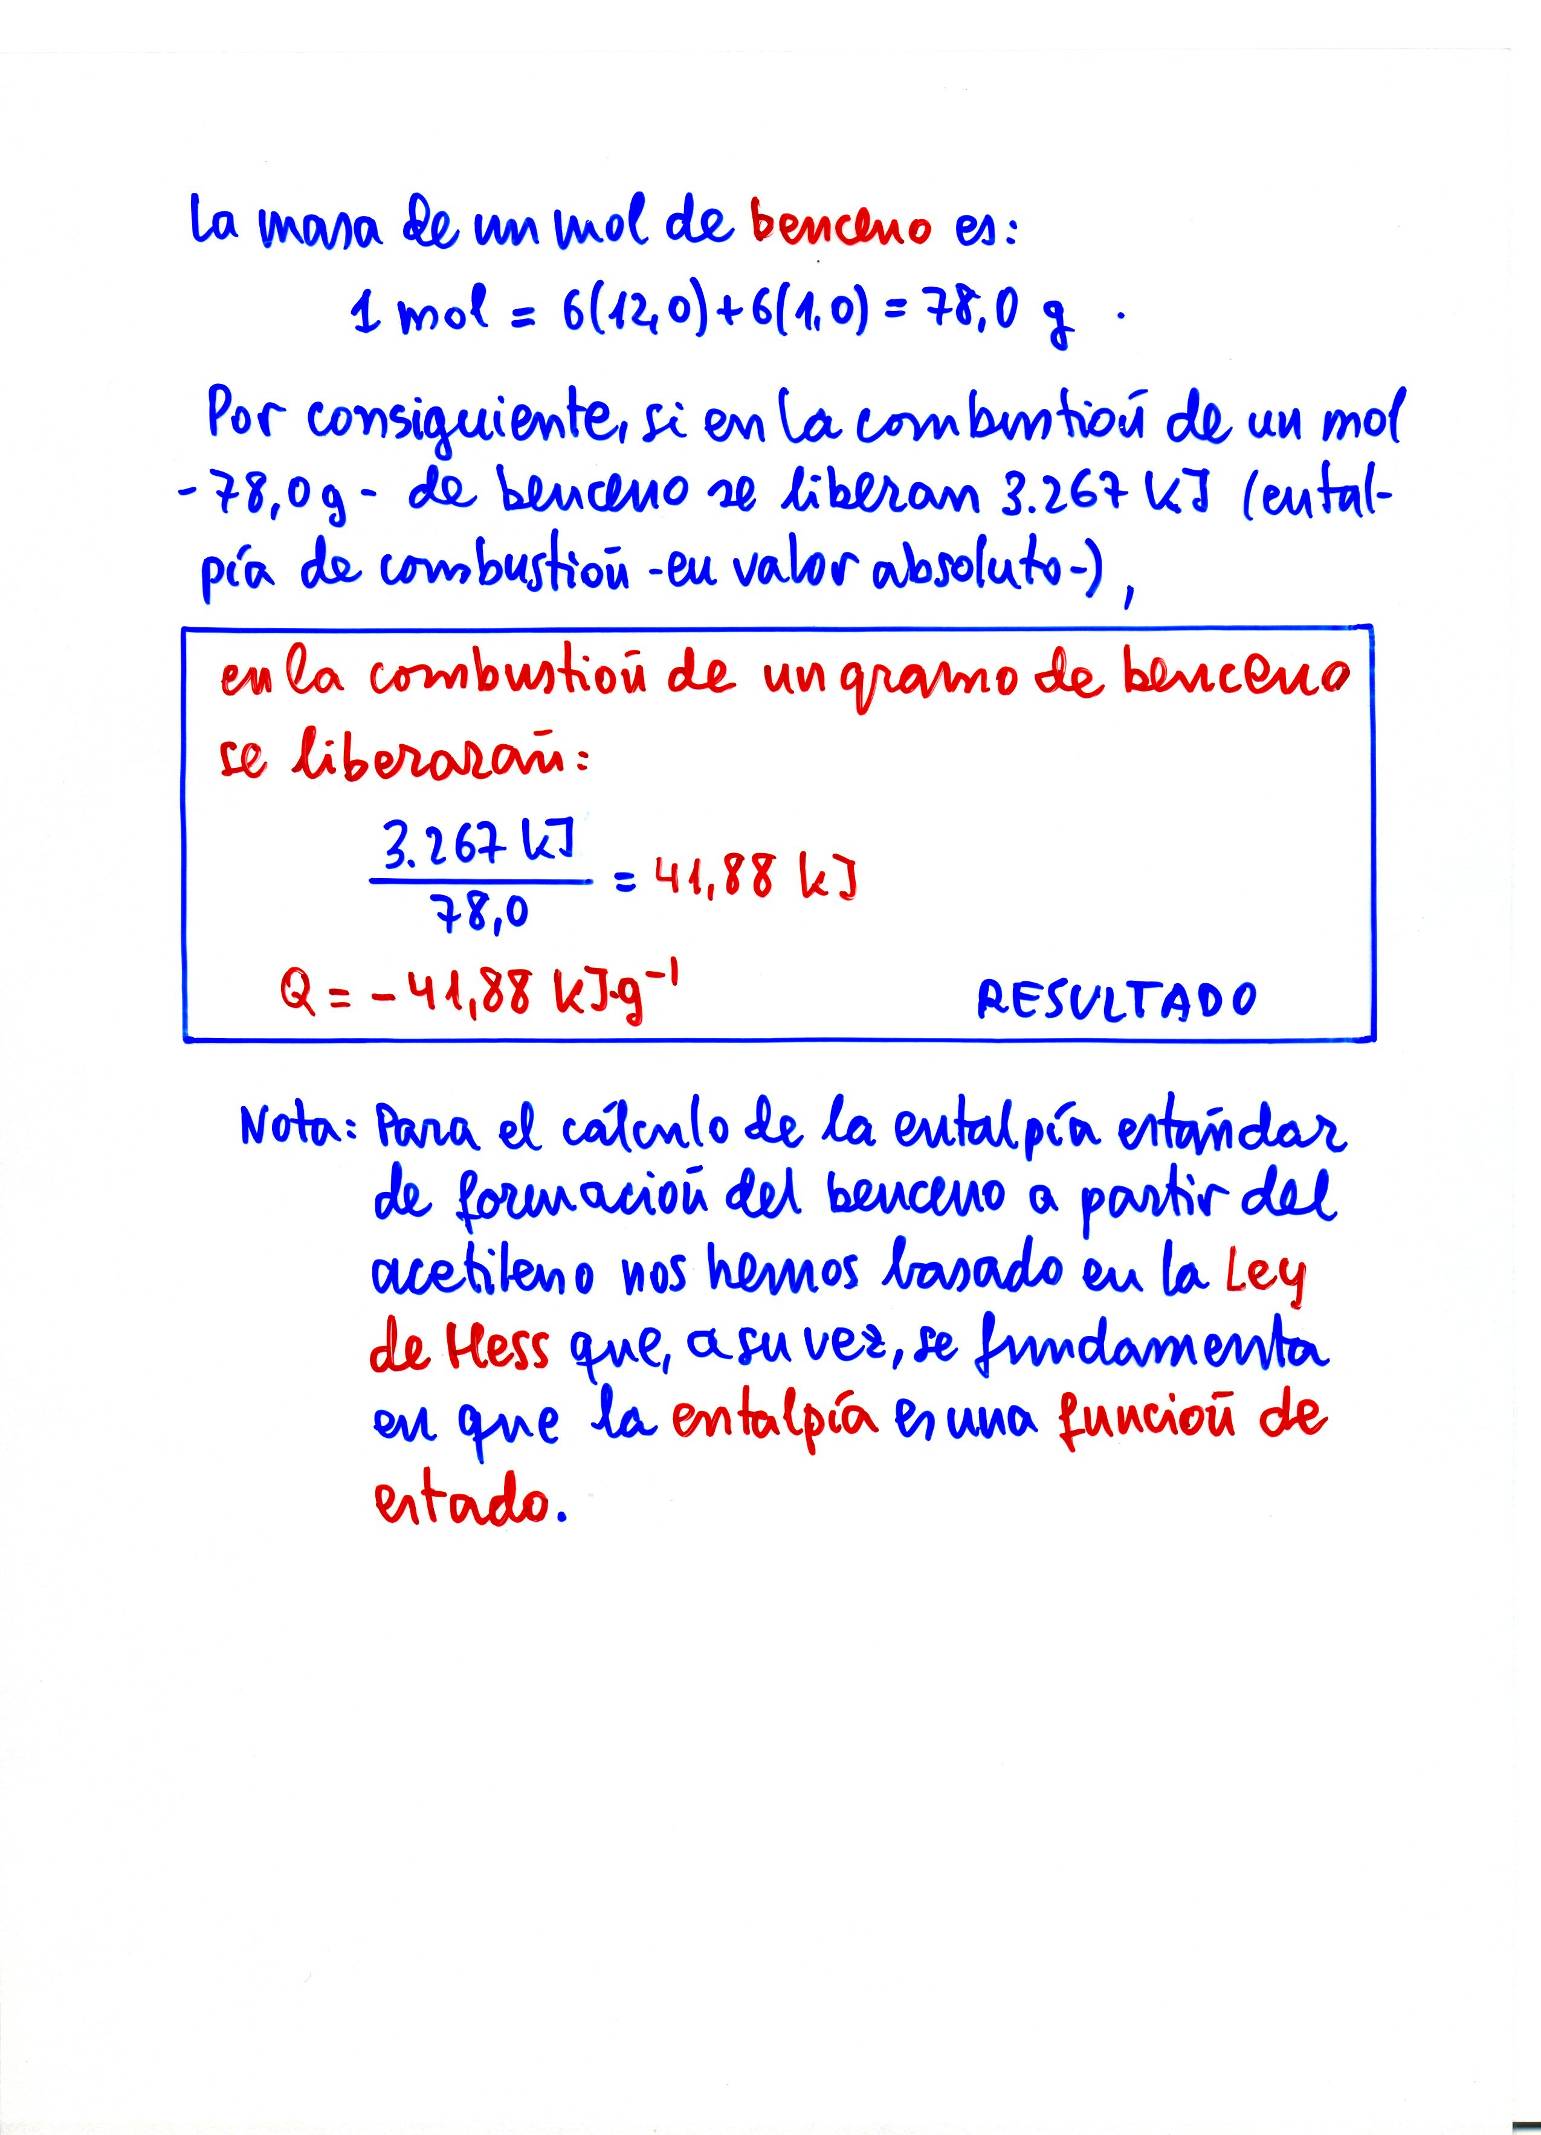 La masa de un mol de benceno es:
1 mol = 6(12,0)+6(1,0) = 78,0 g .
Por consiguiente, si en la combustión de un mol
-78,0 g- de benceno se liberan 3.267 kJ (ental-
pía de combustión -en valor absoluto-),
en la combustión de un gramo de benceno
se liberarán:
3.267 kJ
78,0
= 41,88 kJ
Q = -41,88 kJ·g⁻¹
RESULTADO
Nota: Para el cálculo de la entalpía estándar
de formación del benceno a partir del
acetileno nos hemos basado en la Ley
de Hess que, a su vez, se fundamenta
en que la entalpía es una función de
estado.